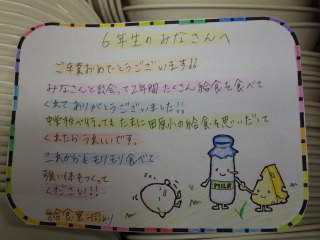 6年生のみなさんへ
ご卒業おめでとうございます!!
みなさんと出会って2年間 たくさん給食を食べて
くれてありがとうございました!!
中学校へ行っても たまに田原小の給食を思いだして
くれたらうれしいです。
これからももりもり食べて
強い体をつくって
くださいね!!
給食室一同より
MILK